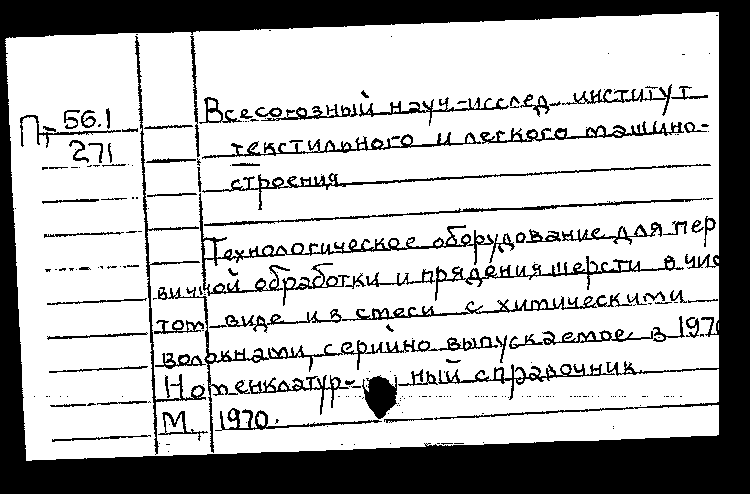 Пт 56.1
271
Всесоюзный науч.-исслед. институт
текстильного и легкого машино-
строения.
Технологическое оборудование для пер
вичной обработки и прядения шерсти в чис
том виде и в смеси с химическими
волокнами, серийно выпускаемое в 1970
Номенклатур- ный справочник.
М., 1970.